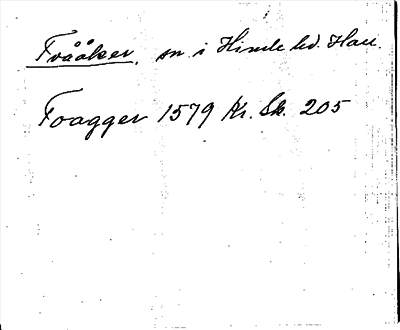 Tvååker, sn. i Himle hd. Hall.
Toagger 1579 Kr. Sk. 205